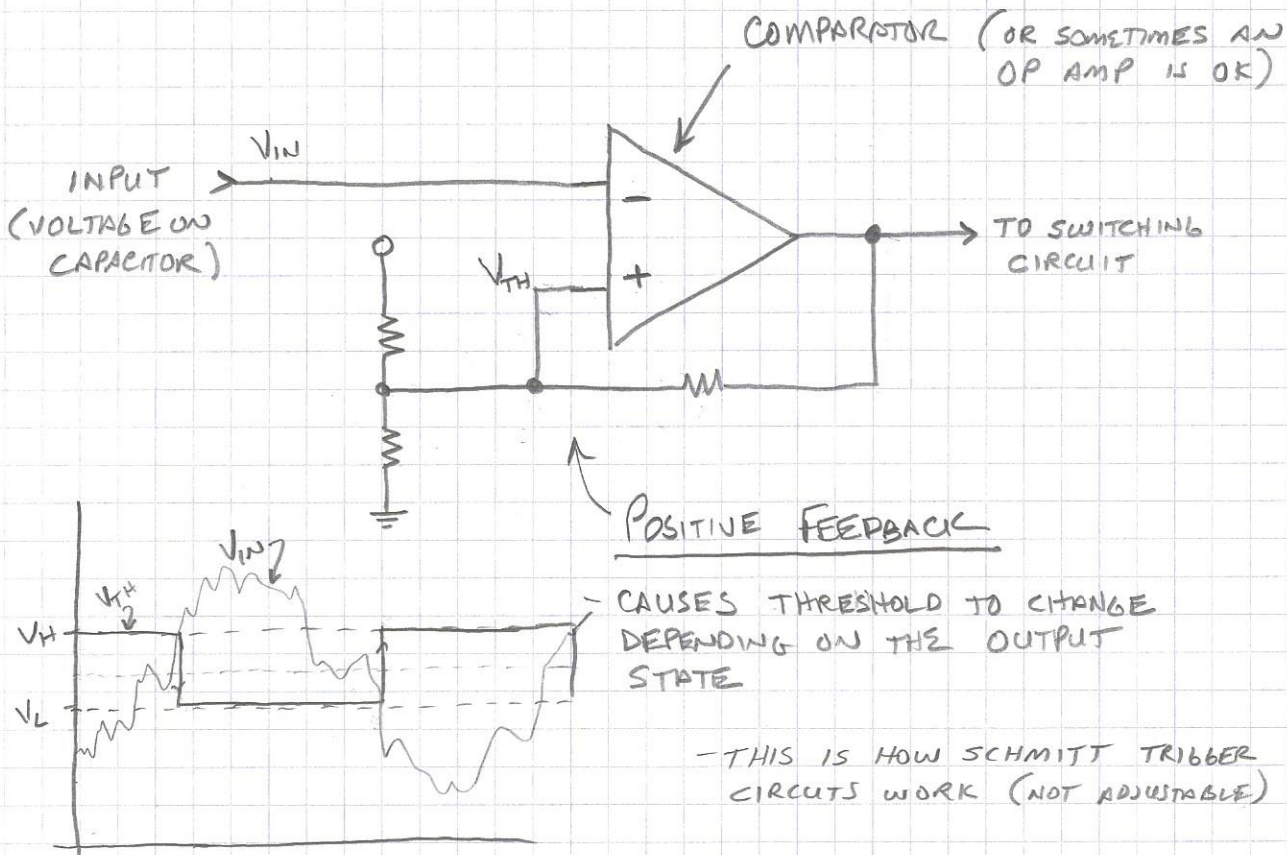 COMPARATOR (OR SOMETIMES AN
OP AMP IS OK)
VIN
INPUT
(VOLTAGE ON
CAPACITOR)
−
+
VTH
TO SWITCHING
CIRCUIT
POSITIVE FEEDBACK
- CAUSES THRESHOLD TO CHANGE
DEPENDING ON THE OUTPUT
STATE
- THIS IS HOW SCHMITT TRIGGER
CIRCUTS WORK (NOT ADJUSTABLE)
VIN
VTH
VH
VL